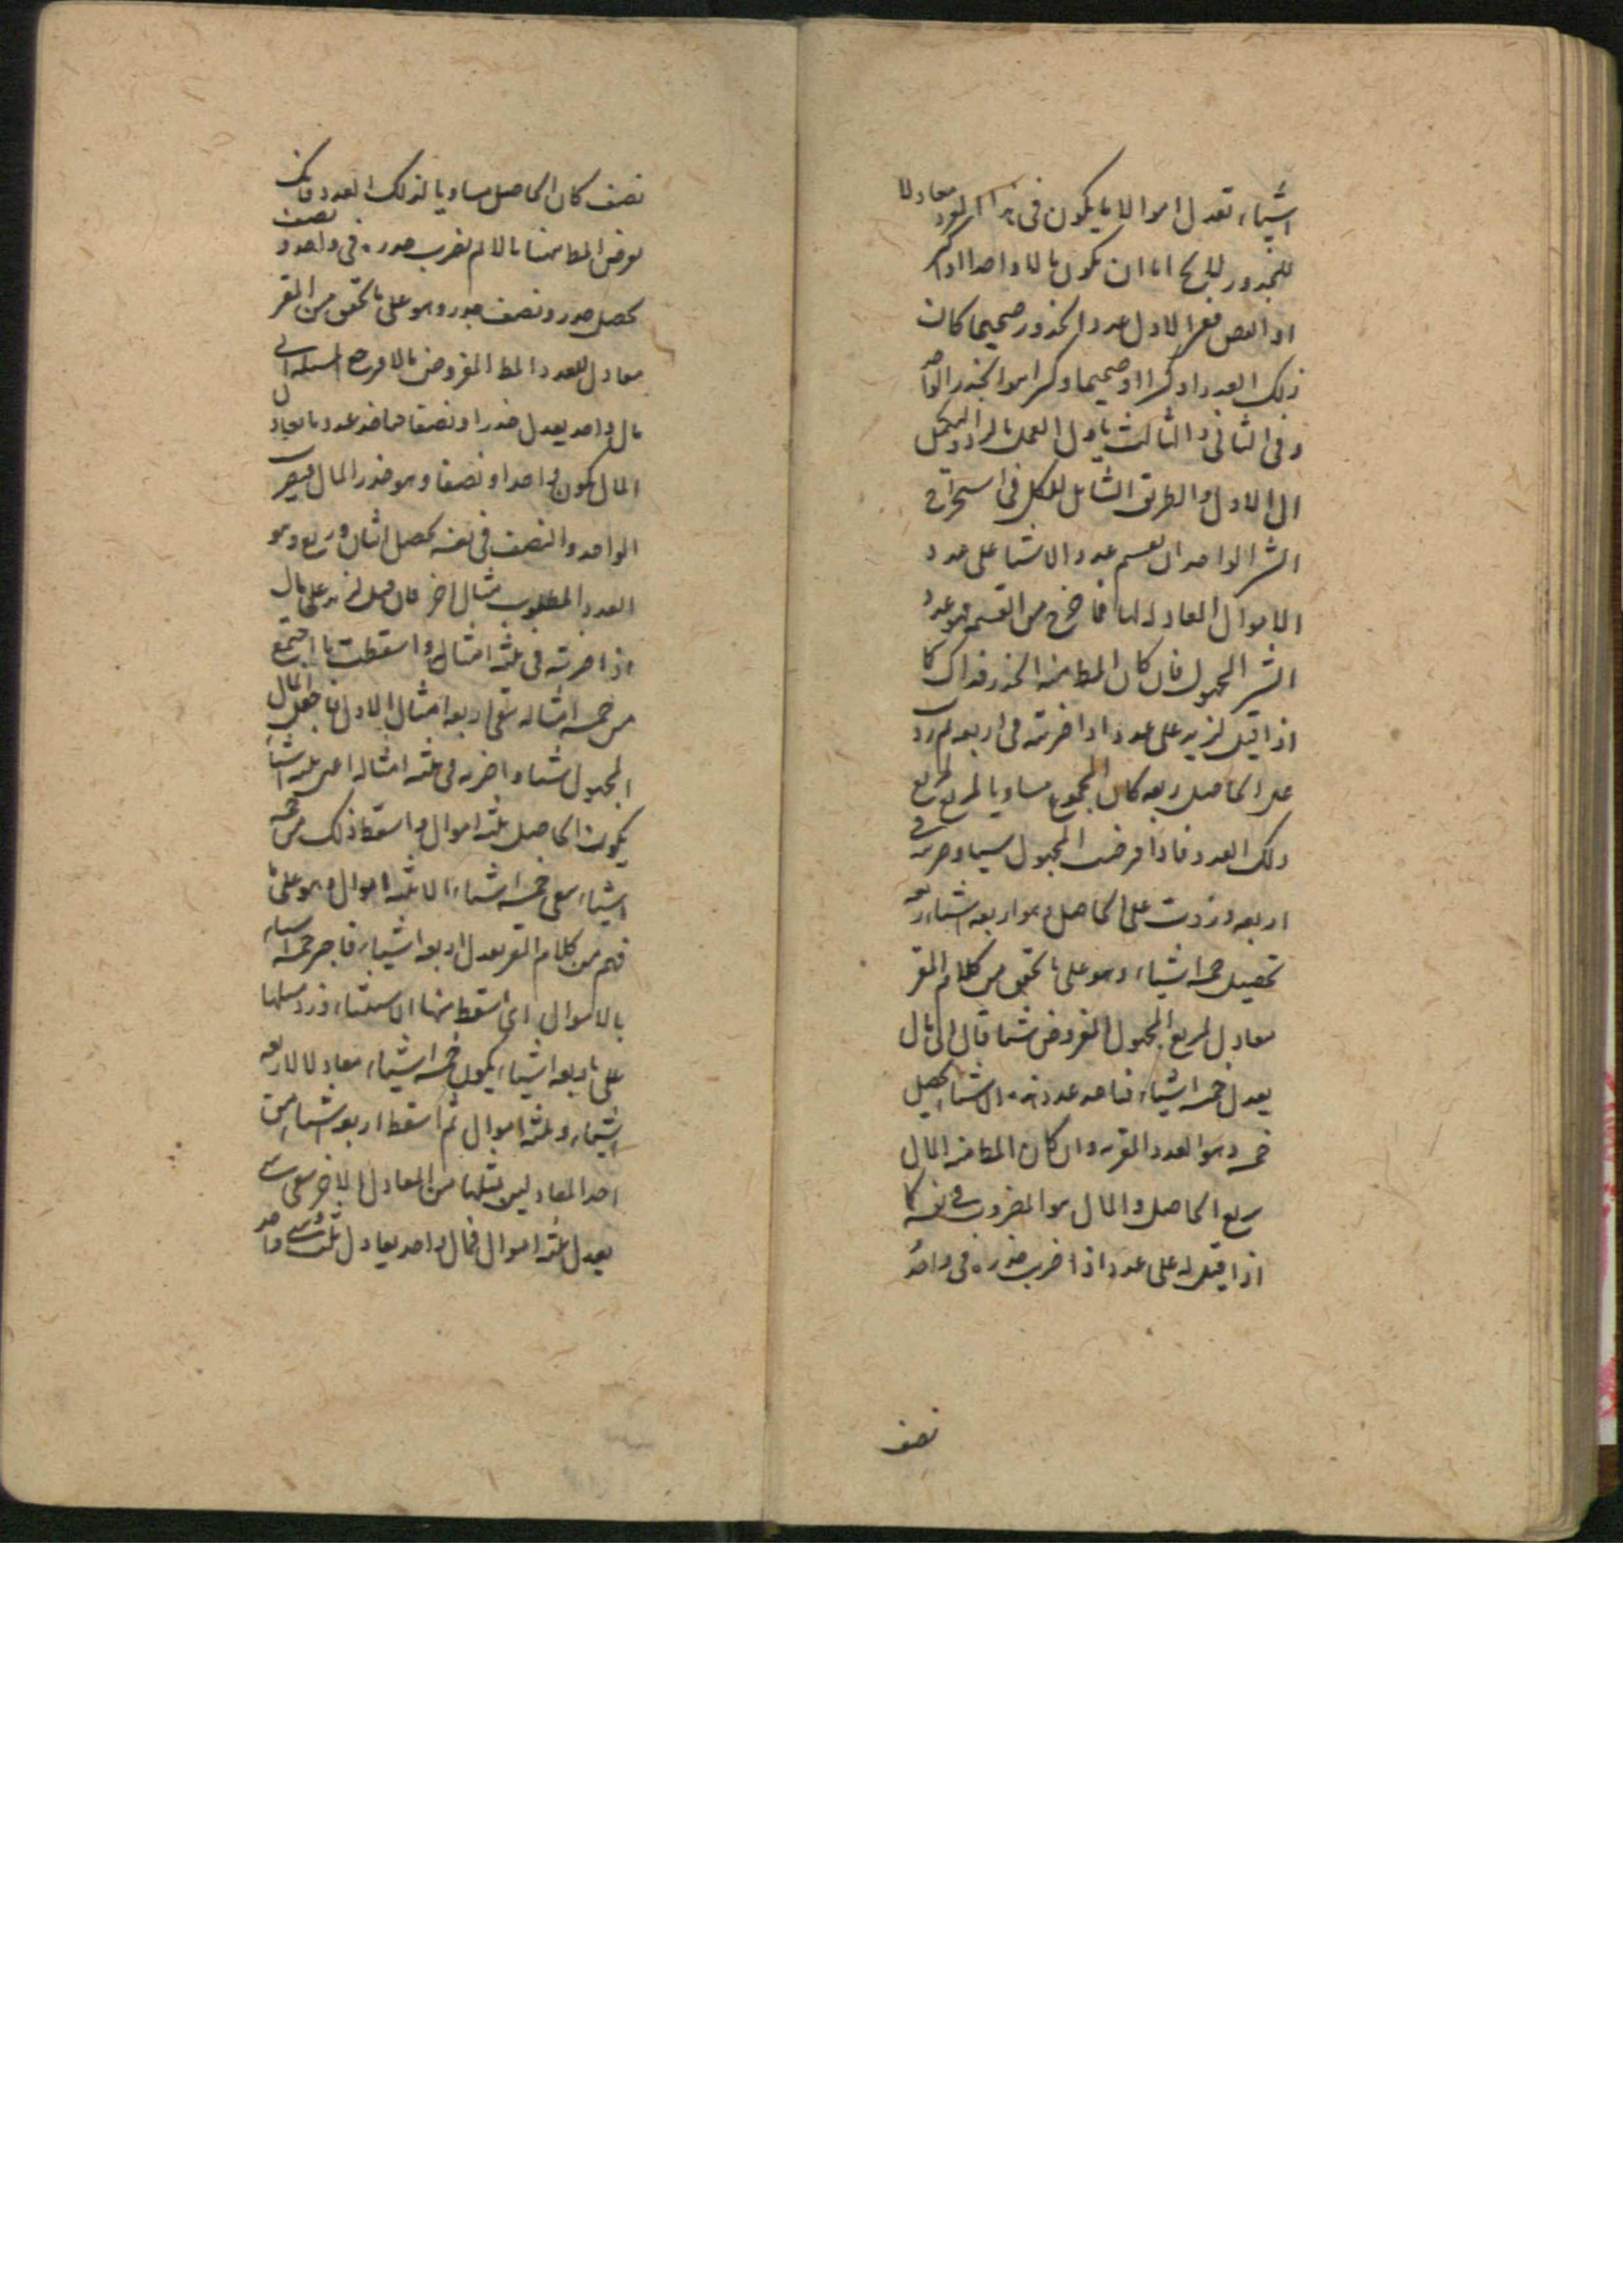 اشياء تعدل اموالا ما يكون فى هذا المعدود معادلا
للجذور لا يخ اما ان يكون مالا واحدا او اكثر
او انقص فعى الاول عدد الجذور صحيحا كان
ذلك العدد او كسرا او صحيحا وكسرا هو الجذر الواحد
وفى الثانى والثالث ياول العمل بالرد او التكميل
الى الاول والطريق الشامل للكل فى استخراج
الشى الواحد ان يقسم عدد الاشيا على عدد
الاموال المعادلة لها فما خرج من القسمة فهو عدد
الشى المجهول فان كان المط منه الجذر فذاك كما
اذا قيل لزيد على عدد اذا ضربته فى اربعه ثم زدت
على الحاصل ربعه كان المجموع مساويا لمربع
ذلك العدد فاذا فرضت المجهول شيا وضربته فى
اربعه وزدت على الحاصل وهو اربعه اشياء ربعه
تحصيل خمسه اشياء وهو على ما تحقق من كلام المقر
معادل لمربع المجهول المفروض شيا قال الى مال
يعدل خمسه اشياء فنا عدد هذه الاشياء يحصل
خمسه وهو العدد المقر به وان كان المط منه المال
ربع الحاصل والمال هو المضروب فى نفسه كما
اذا قيل له على عدد اذا ضرب جذره فى واحد و
نصف
نصف كان الحاصل مساويا لذلك العدد فانك
تفرض المط منها مالا ثم تضرب جذره فى واحد و نصف
يحصل جذر ونصف جذر وهو على ما تحقق من المقر
معادل للعدد المط المفروض مالا فرجع المسئله الى
مال واحد يعدل جذرا ونصفا فما خذ عدد ما يعادل
المال يكون واحدا ونصفا وهو جذر المال فيضرب
الواحد والنصف فى نفسه يحصل اثنان وربع وهو
العدد المطلوب مثال اخر فان قيل لزيد على مال
اذا ضربته فى ثلثه امثاله واسقطت ما اجتمع
من خمسه امثاله بقى اربعه امثال الاول فاجعل المال
المجهول شيا واضربه فى ثلثه امثاله اعنى ثلثه اشيا
يكون الحاصل ثلثه اموال واسقط ذلك من خمسه
اشياء يبقى خمسه اشياء الا ثلثه اموال وهو على ما
فهم من كلام المقر يعدل اربعه اشياء فاجبر خمسه اشياء
بالاموال التى اسقط منها الاستثناء وزد مثلها
على اربعه اشياء يكون خمسه اشياء معادلا لاربعه
اشياء وثلثه اموال ثم اسقط اربعه اشياء من
احد المعادلين ومثلها من المعادل الاخر يبقى شى
يعدل ثلثه اموال فمال واحد يعادل ثلث شى واحد